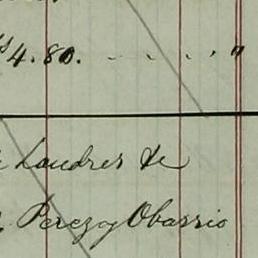 $4.80. . . . . "
Londres de
Perez y Obarrio